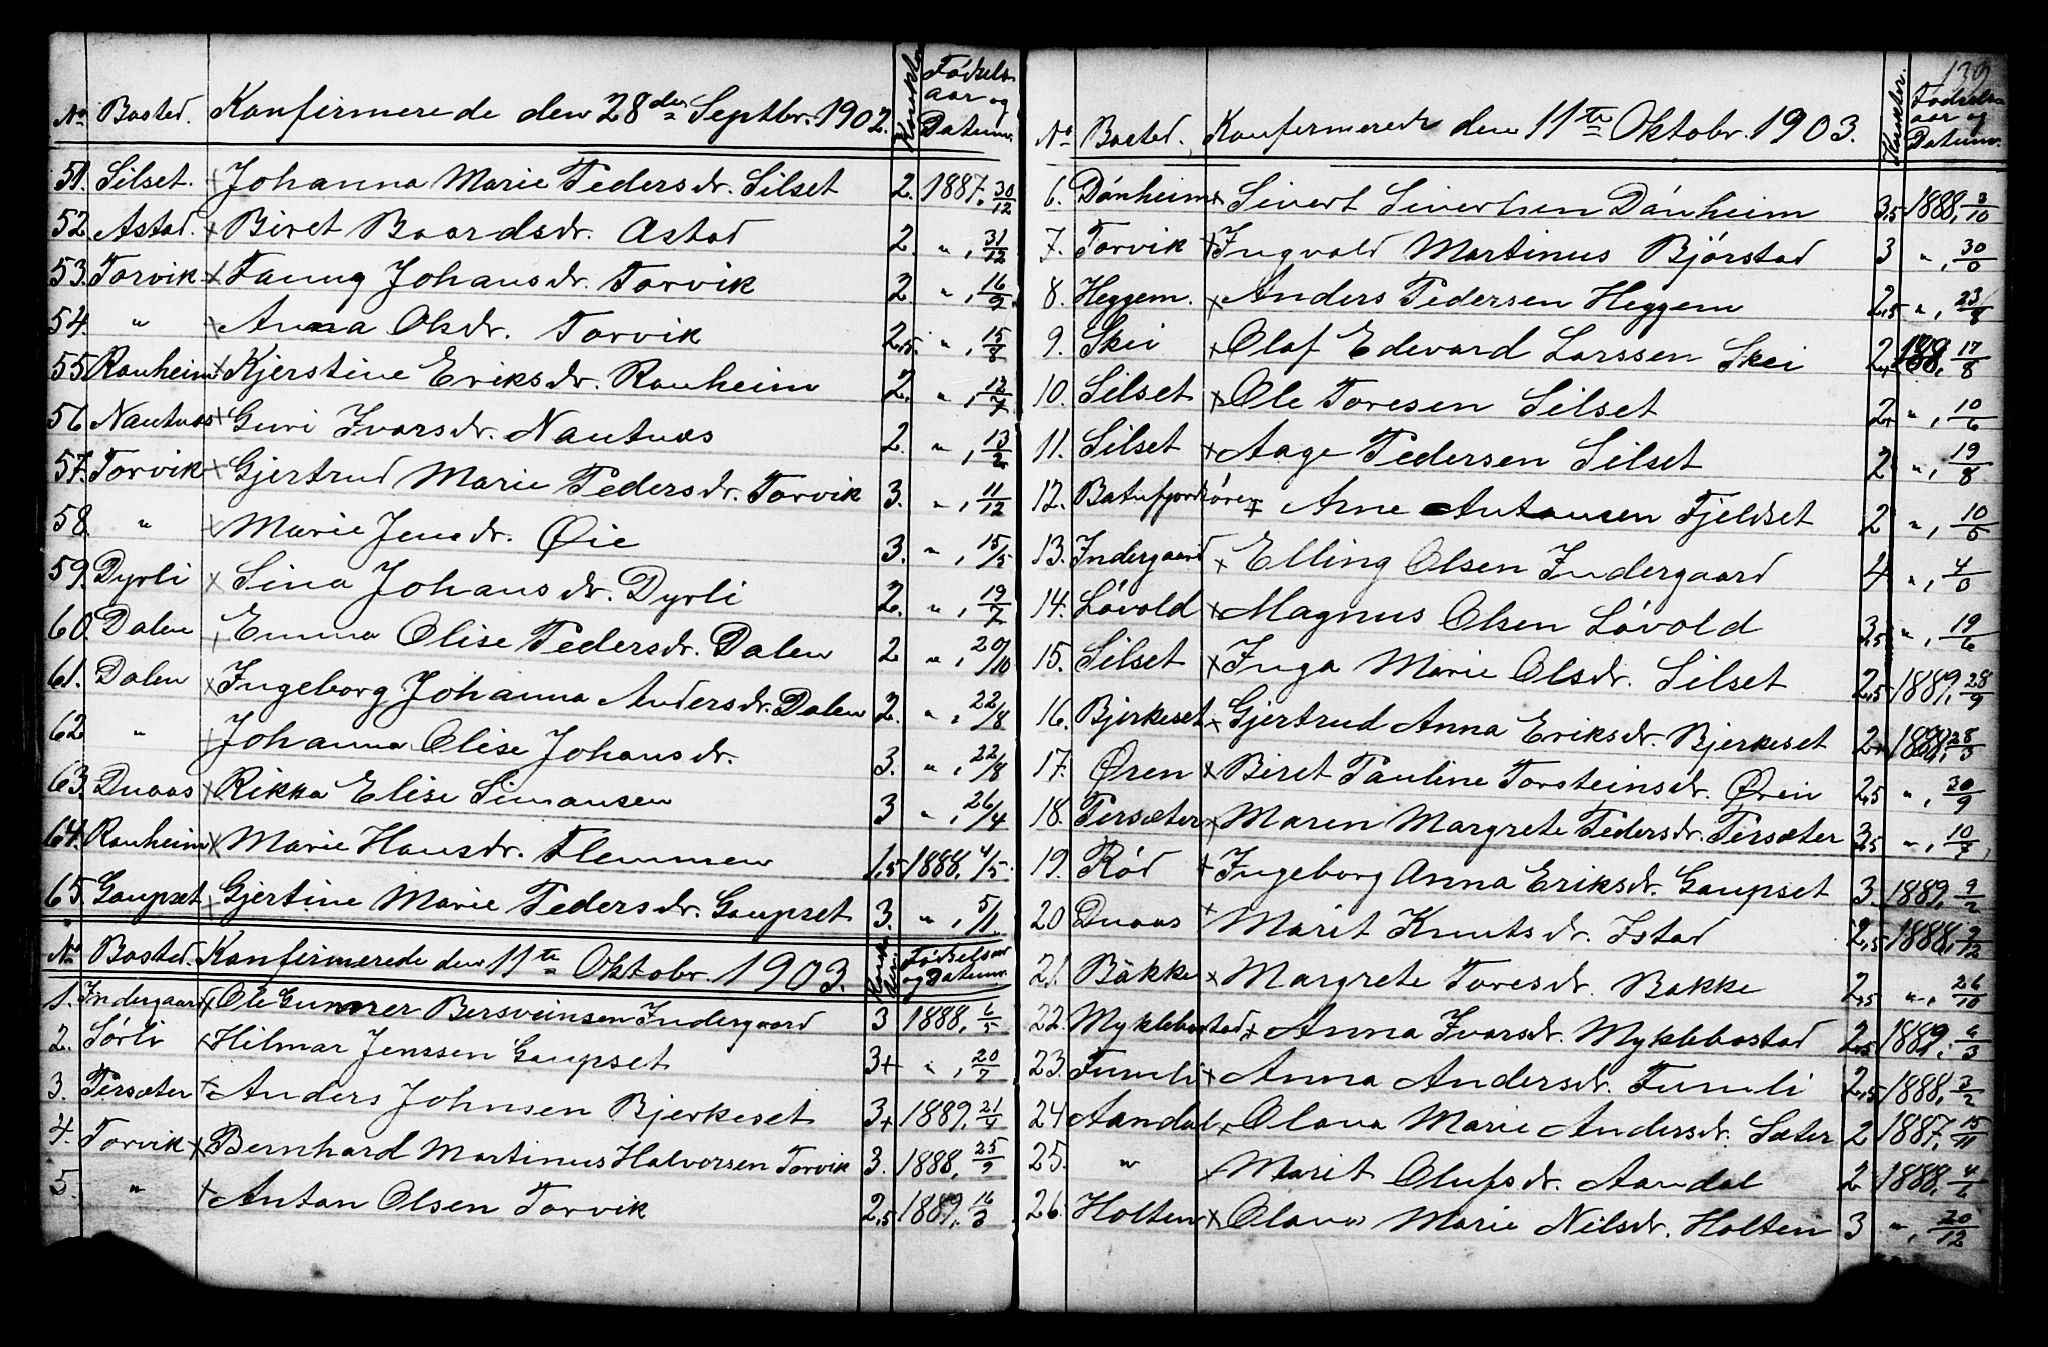 No Bosted. Konfirmerede den 28de Septbr. 1902. Karakter Fødsels-aar og Datum.
51. Silset. x Johanna Marie Pedersdr. Silset 2. 1887. 30/12
52. Astad. x Beret Baardsdr. Astad 2. " , 31/12
53. Torvik x Fanny Johansdr. Torvik 2 " , 16/9
54. " x Anna Olsdr. Torvik 2,5. " , 15/8
55. Ranheim x Kjerstine Eriksdr. Ranheim 2. " , 12/7
56 Nautnæs x Guri Ivarsdr. Nautnæs 2. " , 13/2
57. Torvik x Gjertrud Marie Pedersdr. Torvik 3. " , 11/12
58. " x Marie Jensdr. Øie 3. " , 15/5
59. Dyrli x Sina Johansdr. Dyrli 2. " , 19/7
60. Dalen Emma Olise Pedersdr. Dalen 2 " , 29/10
61. Dalen x Ingeborg Johanna Andersdr. Dalen 2. " , 22/8
62 " Johanna Olise Johansdr. 3. " , 22/8
63. Duaas x Rikka Elise Simonsen 3 " , 26/4
64. Ranheim x Marie Hansdr. Flemmen 1,5 1888, 4/5.
65. Gaupset Gjertine Marie Pedersdr. Gaupset 3. " , 5/1
No Bosted. Konfirmerede den 11te Oktobr. 1903. Fødselsaar og Datum.
1. Indergaard x Ole Gunner Bersveinsen Indergaard 3 1888, 6/5
2. Sørli x Hilmar Jenssen Gaupset 3+ " , 20/7
3. Persæter x Anders Johnsen Bjerkeset 3+ 1889, 21/4
4. Torvik x Bernhard Martinus Halvorsen Torvik 3. 1888, 25/9
5. " x Antan Olsen Torvik 2,5 1889, 16/3
139
No Bosted. Konfirmerede den 11te Oktobr. 1903. Karakter. Fødsels-aar og Datum.
6. Dønheim x Sivert Sivertsen Dønheim 3,5 1888, 3/10
7. Torvik x Ingvald Martinus Bjørstad 3 " , 30/
8. Heggem. x Anders Pedersen Heggem 2,5 " , 23/8
9. Skei x Olaf Edevard Larssen Skei 2+ 17/8
10. Silset x Ole Toresen Silset 2+ " , 10/6
11. Silset x Aage Pedersen Silset 2 " , 19/8
12. Batnfjordsøren x Arne Antonsen Fjeldset 2 " , 10/5
13. Indergaard x Elling Olsen Indergaard 4 " , 4/
14. Løvold x Magnus Olsen Løvold 3,5 " , 19/6
15. Silset x Inga Marie Olsdr. Silset 2,5 1889, 28/9
16. Bjerkeset x Gjertrud Anna Eriksdr. Bjerkeset 2+ 28/3
17. Øren x Beret Pauline Torsteinsdr. Øren 2,5 " , 30/9
18. Persæter x Maren Margrete Pedersdr. Persæter 3,5 " , 10/7,
19. Rød x Ingeborg Anna Eriksdr. Gaupset 3. 1889, 9/2
20 Duaas x Marit Knutsdr. Istad 2,5 1888, 9/12
21. Bakke x Margrete Toresdr. Bakke 2,5 " , 26/10
22. Myklebostad x Anna Ivarsdr. Myklebostad 2,5 1889, 6/3
23. Fumli x Anna Andersdr. Fumli 2,5 1888, 3/2
24 Aandal x Olava Marie Andersdr. Sæter 2 1887, 15/11
25. " x Marit Olufsdr. Aandal 2 1888, 4/6
26. Holten x Olava Marie Nilsdr. Holten 3 " , 20/12